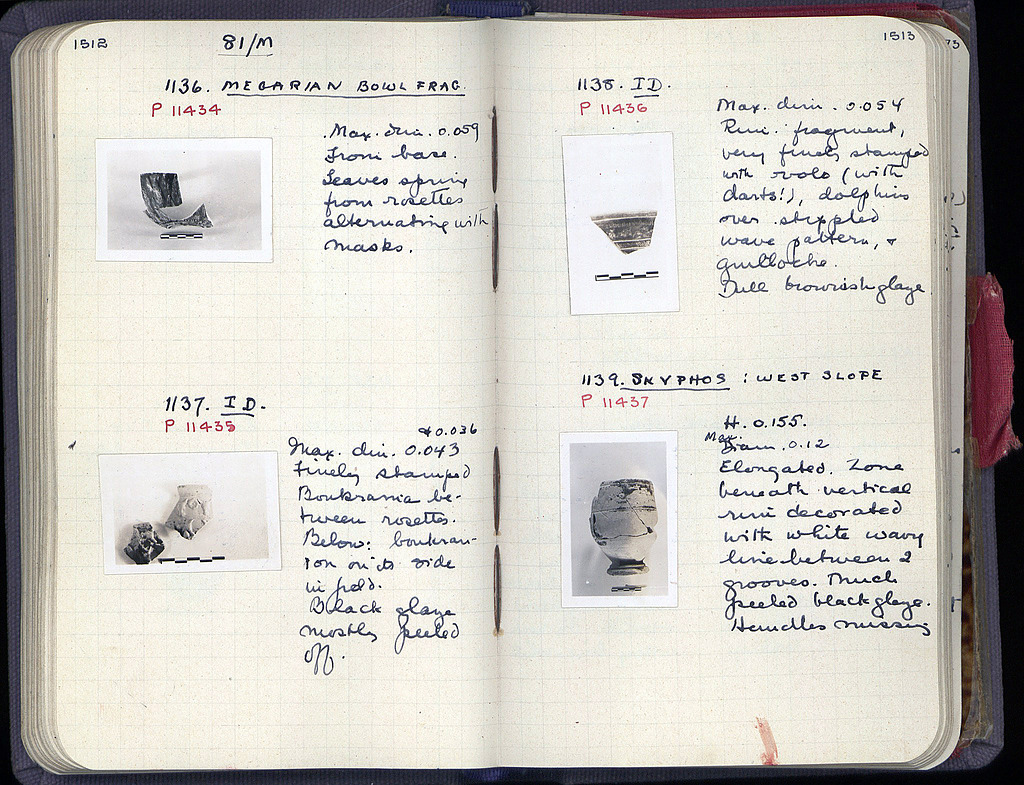 1512
81/M
1136. MEGARIAN BOWL FRAG.
P 11434
Max. dim. 0.059
From base.
Leaves spring
from rosettes
alternating with
masks.
1137. ID.
P 11435
& 0.036
Max. dim. 0.043
Finely stamped
Boukrania be-
tween rosettes.
Below: boukran-
ion on its side
in field.
Black glaze
mostly peeled
off.
1513
73
1138. ID.
P 11436
Max. dim. 0.054
Rim fragment,
very finely stamped
with ovolo (with
darts!), dolphins
over stippled
wave pattern, &
guilloche.
Dull brownish glaze
1139. SKYPHOS : WEST SLOPE
P 11437
H. 0.155.
Max.
Diam. 0.12
Elongated. Zone
beneath vertical
rim decorated
with white wavy
line between 2
grooves. Much
peeled black glaze.
Handles missing